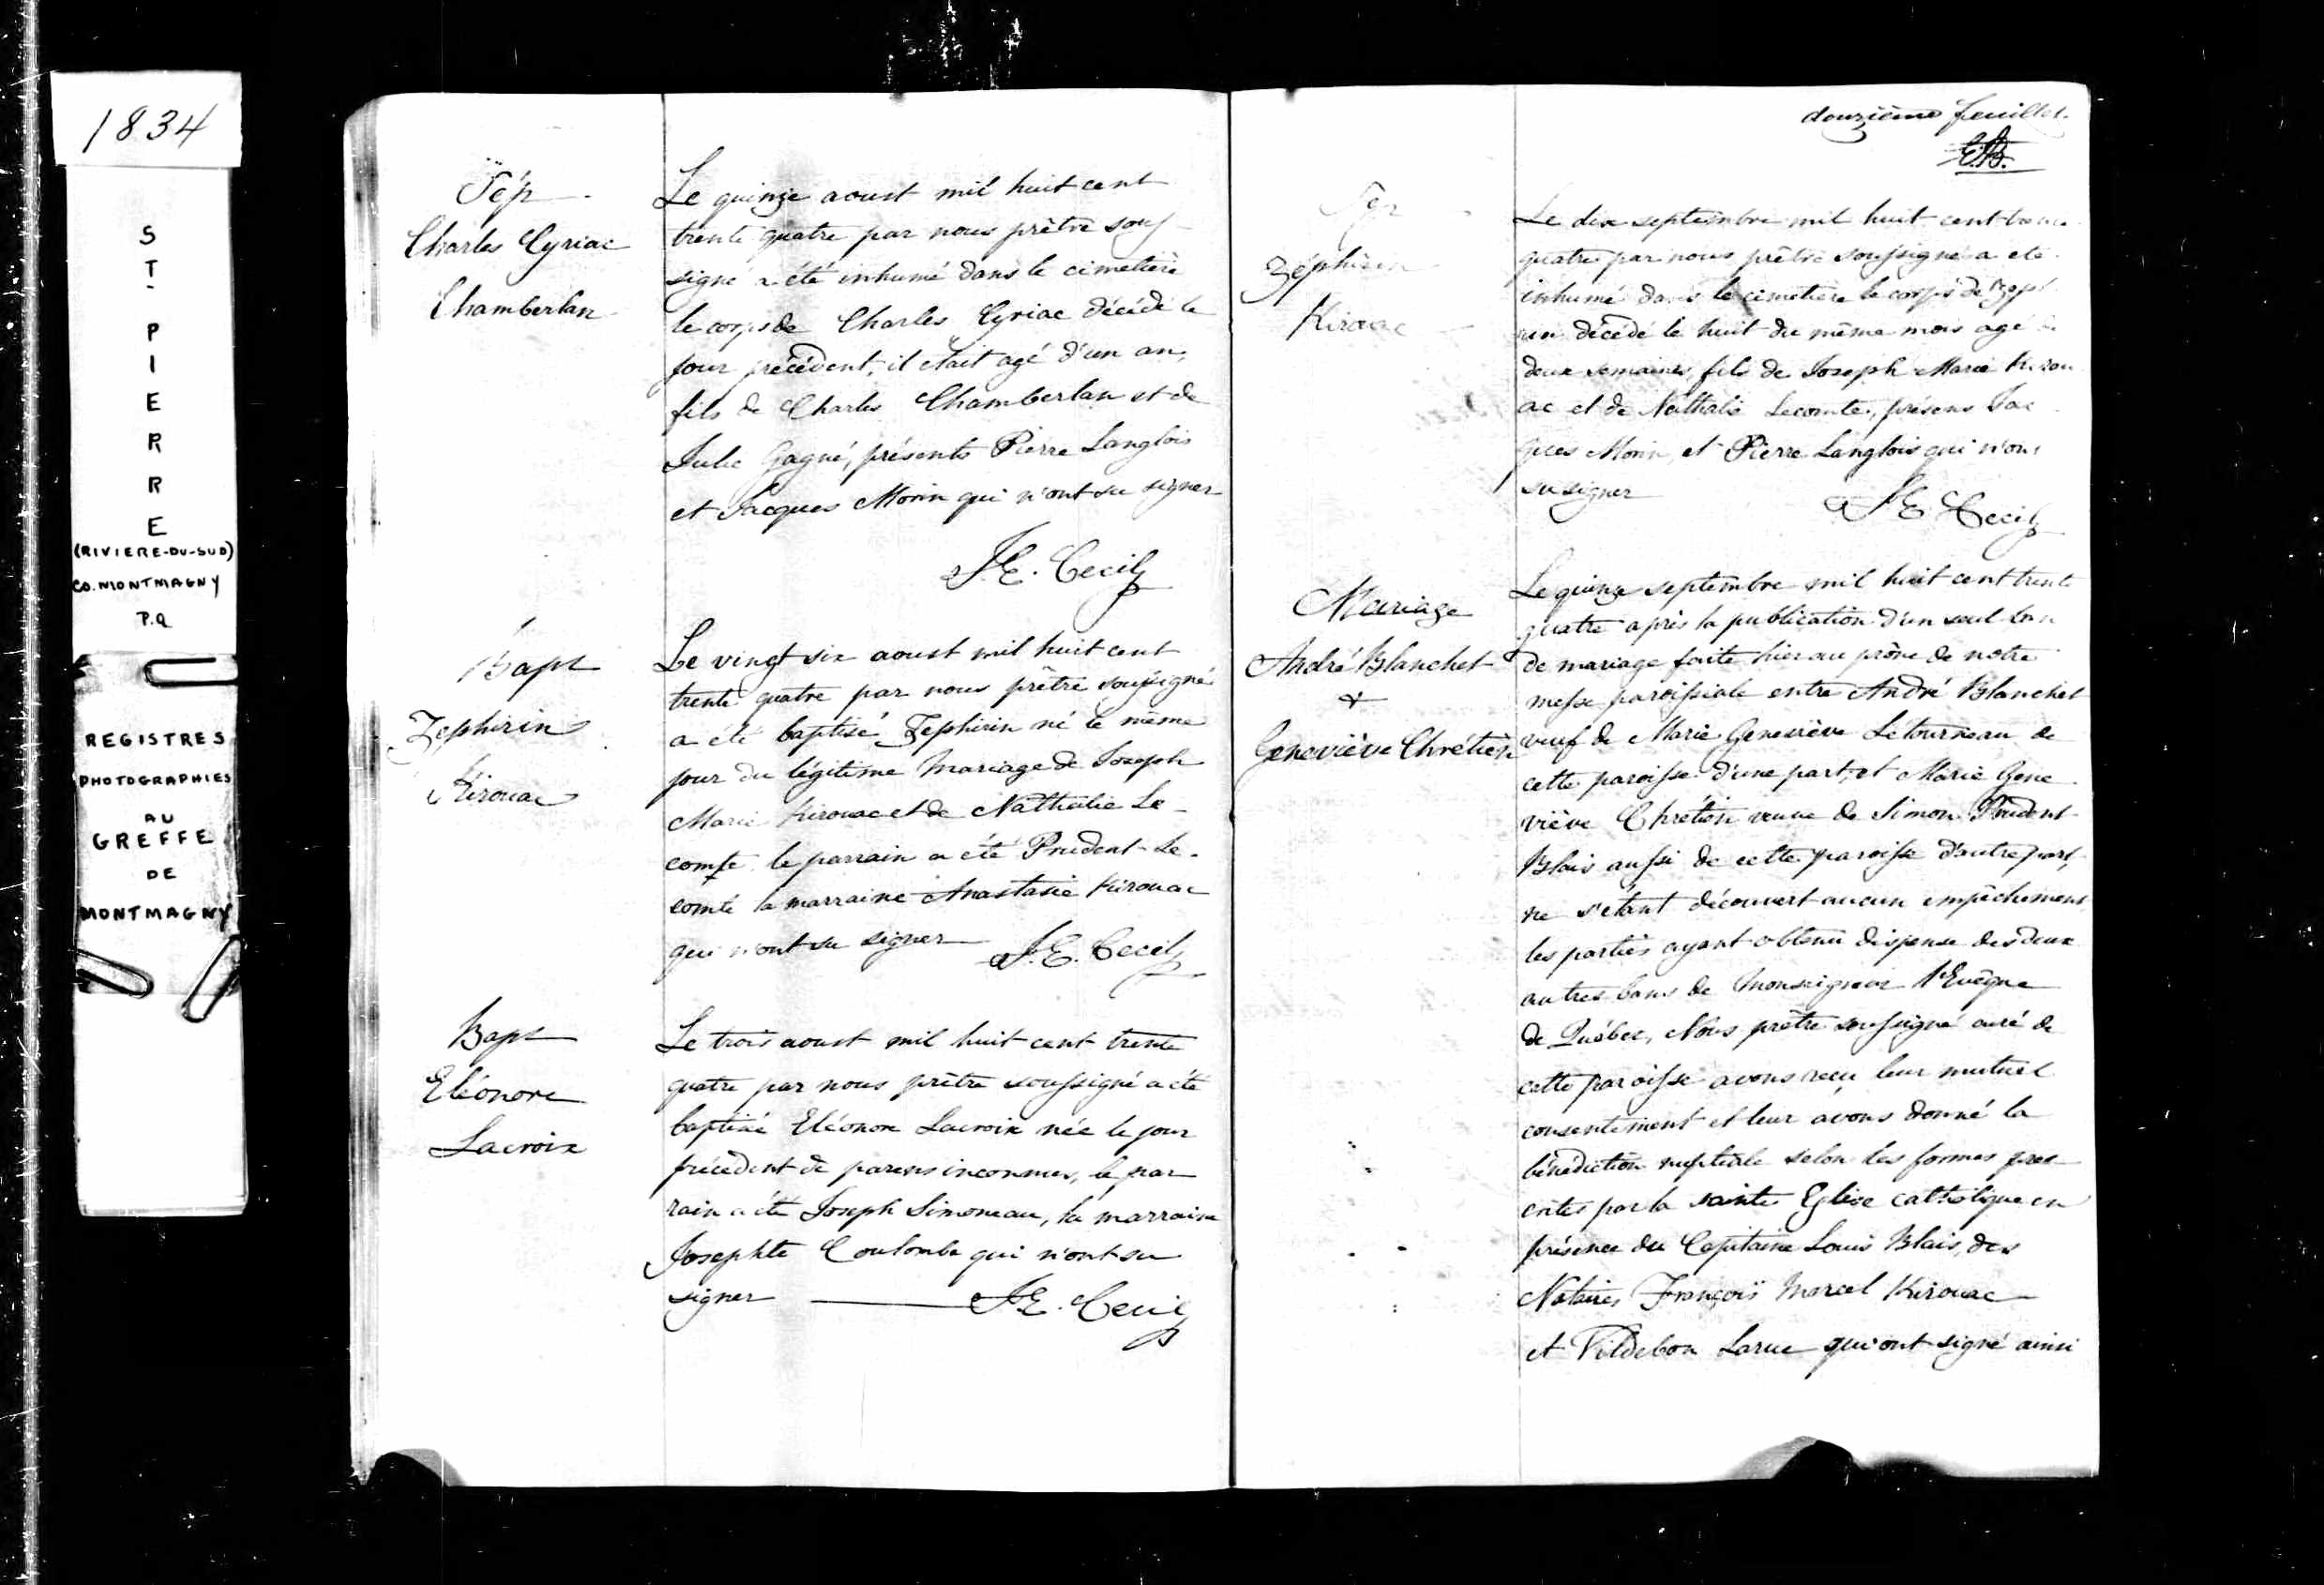 1834
ST-PIERRE
(RIVIERE-DU-SUD)
CO. MONTMAGNY
P.Q
REGISTRES
PHOTOGRAPHIES
AU
GREFFE
DE
MONTMAGNY
Sép
Charles Cyriac
Chamberlan
Le quinze aoust mil huit cent
trente quatre par nous prêtre sous
signé a été inhumé dans le cimetiere
le corps de Charles Cyriac décédé le
jour précédent, il etait agé d'un an,
fils de Charles Chamberlan et de
Julie Gagné, présents Pierre Langlois
et Jacques Morin qui n'ont su signer
J.E. Cecil
Bapt
Zephirin
Kirouac
Le vingt six aoust mil huit cent
trente quatre par nous prêtre soussigné
a été baptisé Zephirin né le même
jour du légitime mariage de Joseph
Marie Kirouac et de Nathalie Le-
comte le parrain a été Prudent Le-
comte la marraine Anastasie Kirouac
qui n'ont su signer J.E. Cecil
Bapt
Eléonore
Lacroix
Le trois aoust mil huit cent trente
quatre par nous prêtre soussigné a été
baptisée Eléonore Lacroix née le jour
précédent de parens inconnus, le par
rain a été Joseph Simoneau, la marraine
Josephte Coulombe qui n'ont su
signer J.E. Cecil
douzième feuillet.
Sép
Zéphirin
Kirouac
Le dix septembre mil huit cent trente
quatre par nous prêtre soussigné a ete
inhumé dans le cimetiere le corps de Zeph
rin décédé le huit du même mois agé de
deux semaines, fils de Joseph Marie Kirou
ac et de Nathalie Lecomte, présens Jac
ques Morin, et Pierre Langlois qui n'ont
su signer
J.E. Cecil
Mariage
André Blanchet
&
Geneviève Chrétien
Le quinze septembre mil huit cent trente
quatre après la publication d'un seul ban
de mariage faite hier au prône de notre
messe paroissiale entre André Blanchet
veuf de Marie Geneviève Letourneau de
cette paroisse d'une part, et Marie Gene
viève Chrétien veuve de Simon Prudent
Blais aussi de cette paroisse d'autre part,
ne s'étant découvert aucun empêchement
les parties ayant obtenu dispense des deux
autres bans de Monseigneur l'Evêque
de Québec, Nous prêtre soussigné curé de
cette paroisse avons reçu leur mutuel
consentement et leur avons donné la
bénédiction nuptiale selon les formes pres
crites par la sainte Eglise catholique en
présence du Capitaine Louis Blais, des
Notaires François Marcel Kirouac
et Vildebon Larue qui ont signé ainsi